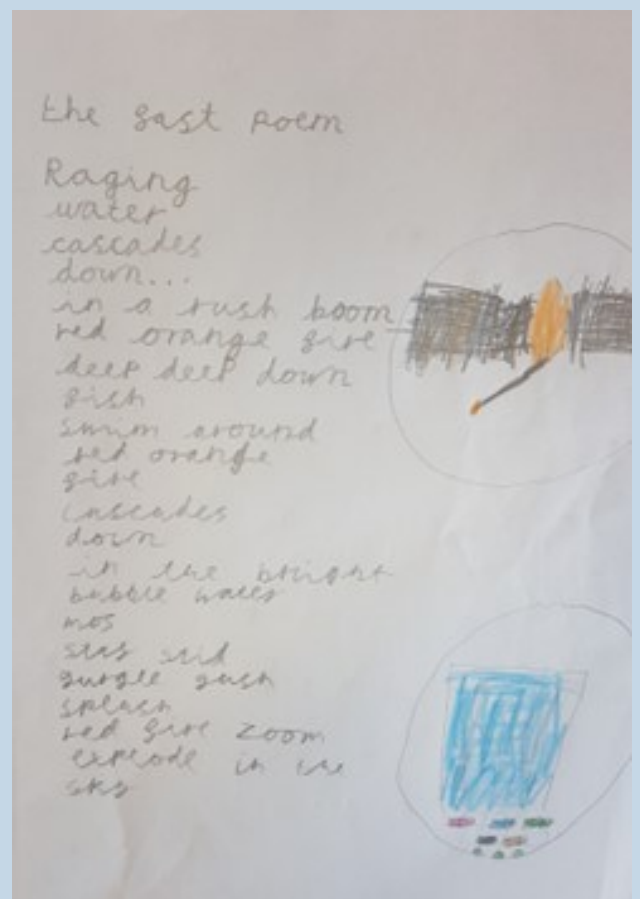 the fast poem
Raging
water
cascades
down...
in a rush boom
red orange fire
deep deep down
fish
swim around
red orange
fire
cascades
down
in the bright
bubble water
gurgle gush
splash
red fire zoom
explode in the
sky